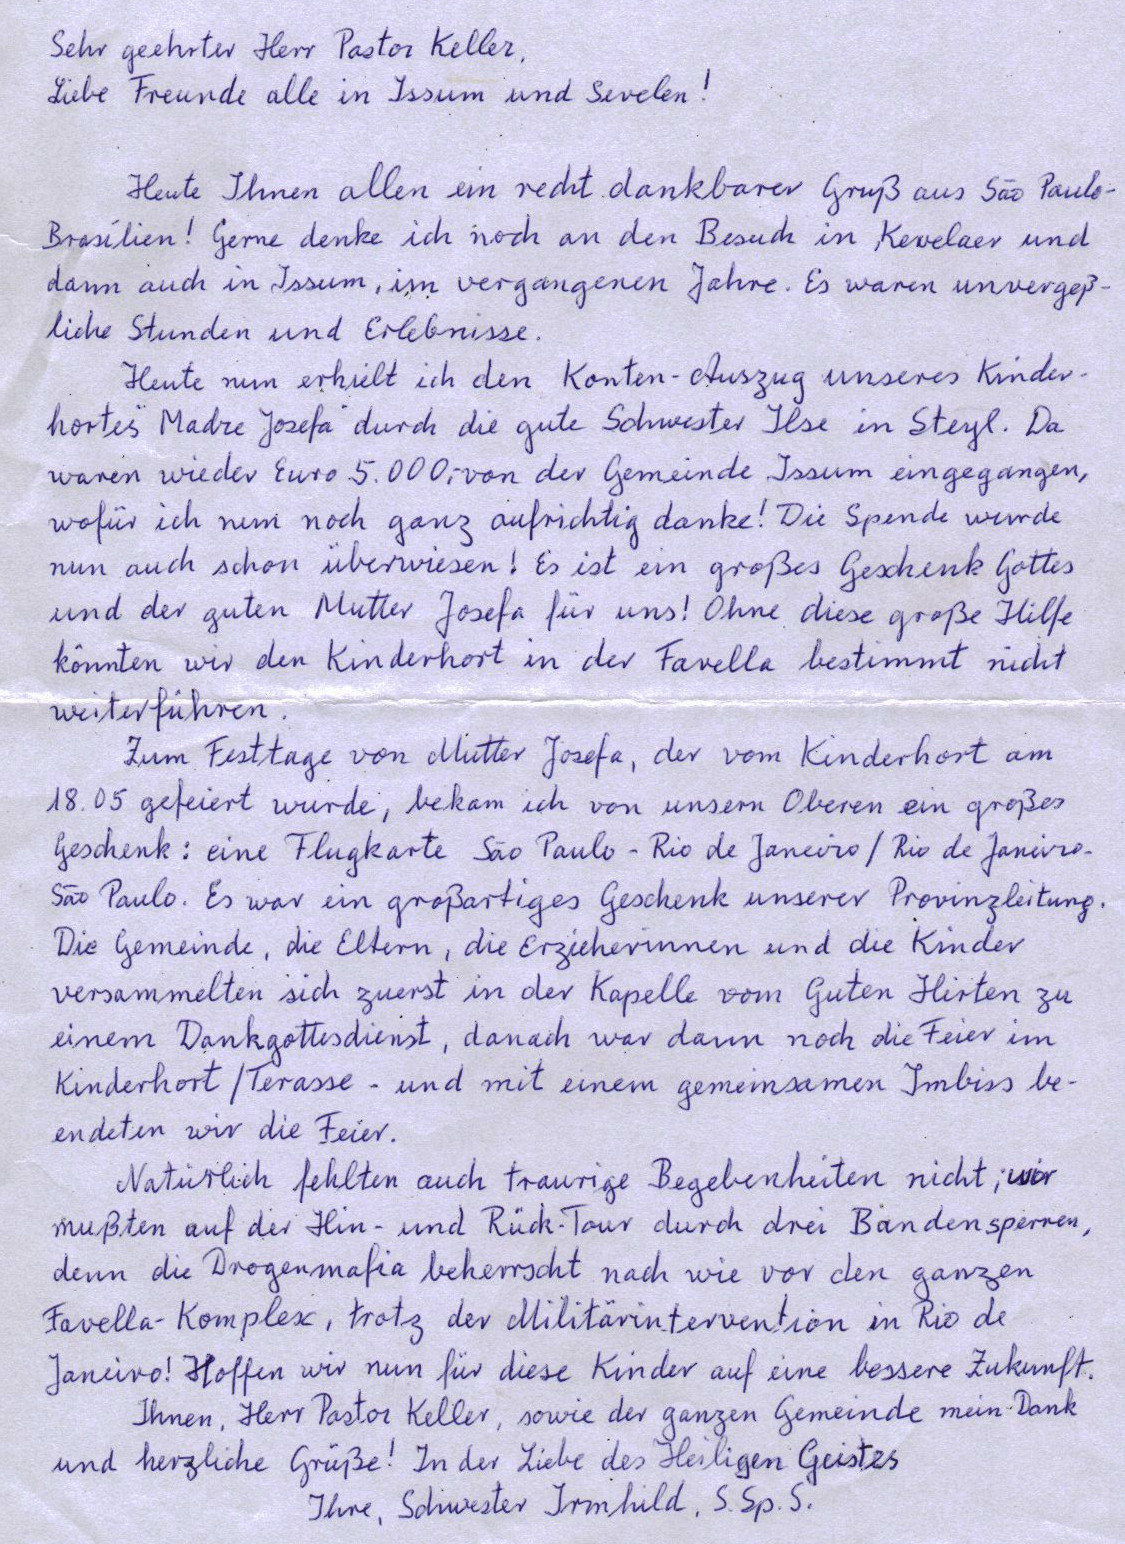 Sehr geehrter Herr Pastor Keller,
Liebe Freunde alle in Issum und Sevelen!
Heute Ihnen allen ein recht dankbarer Gruß aus São Paulo-
Brasílien! Gerne denke ich noch an den Besuch in Kevelaer und
dann auch in Issum, im vergangenen Jahre. Es waren unvergeß-
liche Stunden und Erlebnisse.
Heute nun erhielt ich den Konten-Auszug unseres Kinder-
hortes "Madre Josefa" durch die gute Schwester Ilse in Steyl. Da
waren wieder Euro 5.000,- von der Gemeinde Issum eingegangen,
wofür ich nun noch ganz aufrichtig danke! Die Spende wurde
nun auch schon überwiesen! Es ist ein großes Geschenk Gottes
und der guten Mutter Josefa für uns! Ohne diese große Hilfe
könnten wir den Kinderhort in der Favella bestimmt nicht
weiterführen.
Zum Festtage von Mutter Josefa, der vom Kinderhort am
18.05 gefeiert wurde, bekam ich von unsern Oberen ein großes
Geschenk: eine Flugkarte São Paulo - Rio de Janeiro / Rio de Janeiro-
São Paulo. Es war ein großartiges Geschenk unserer Provinzleitung.
Die Gemeinde, die Eltern, die Erzieherinnen und die Kinder
versammelten sich zuerst in der Kapelle vom Guten Hirten zu
einem Dankgottesdienst, danach war dann noch die Feier im
Kinderhort /Terasse - und mit einem gemeinsamen Imbiss be-
endeten wir die Feier.
Natürlich fehlten auch traurige Begebenheiten nicht; wir
mußten auf der Hin- und Rück-Tour durch drei Bandensperren,
denn die Drogenmafia beherrscht nach wie vor den ganzen
Favella-Komplex, trotz der Militärintervention in Rio de
Janeiro! Hoffen wir nun für diese Kinder auf eine bessere Zukunft.
Ihnen, Herr Pastor Keller, sowie der ganzen Gemeinde mein Dank
und herzliche Grüße! In der Liebe des Heiligen Geistes
Ihre, Schwester Irmhild, S.Sp.S.